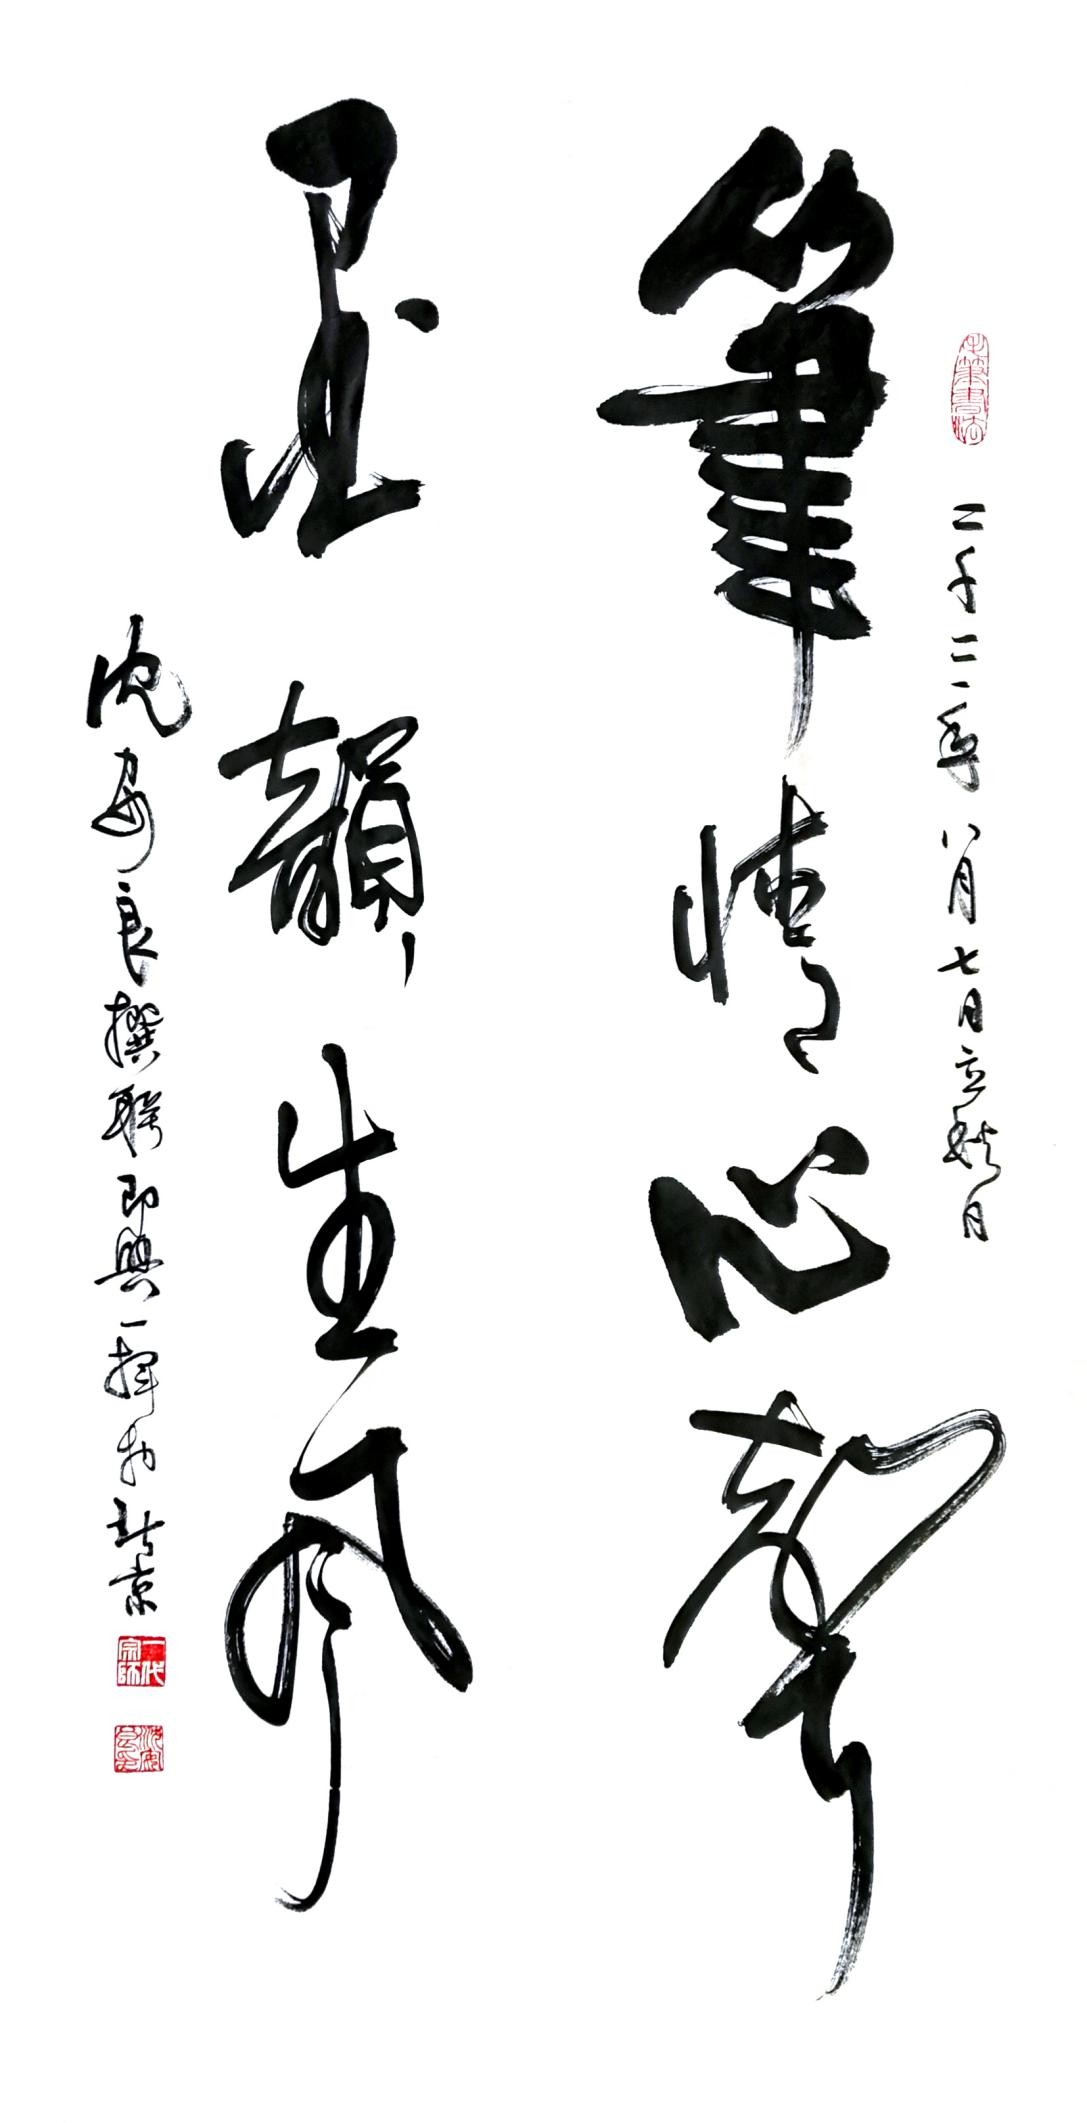 二千二一年八月七日立秋日
筆情心聲
墨韻生風
沈安良撰聯即興一揮於北京
一代宗師